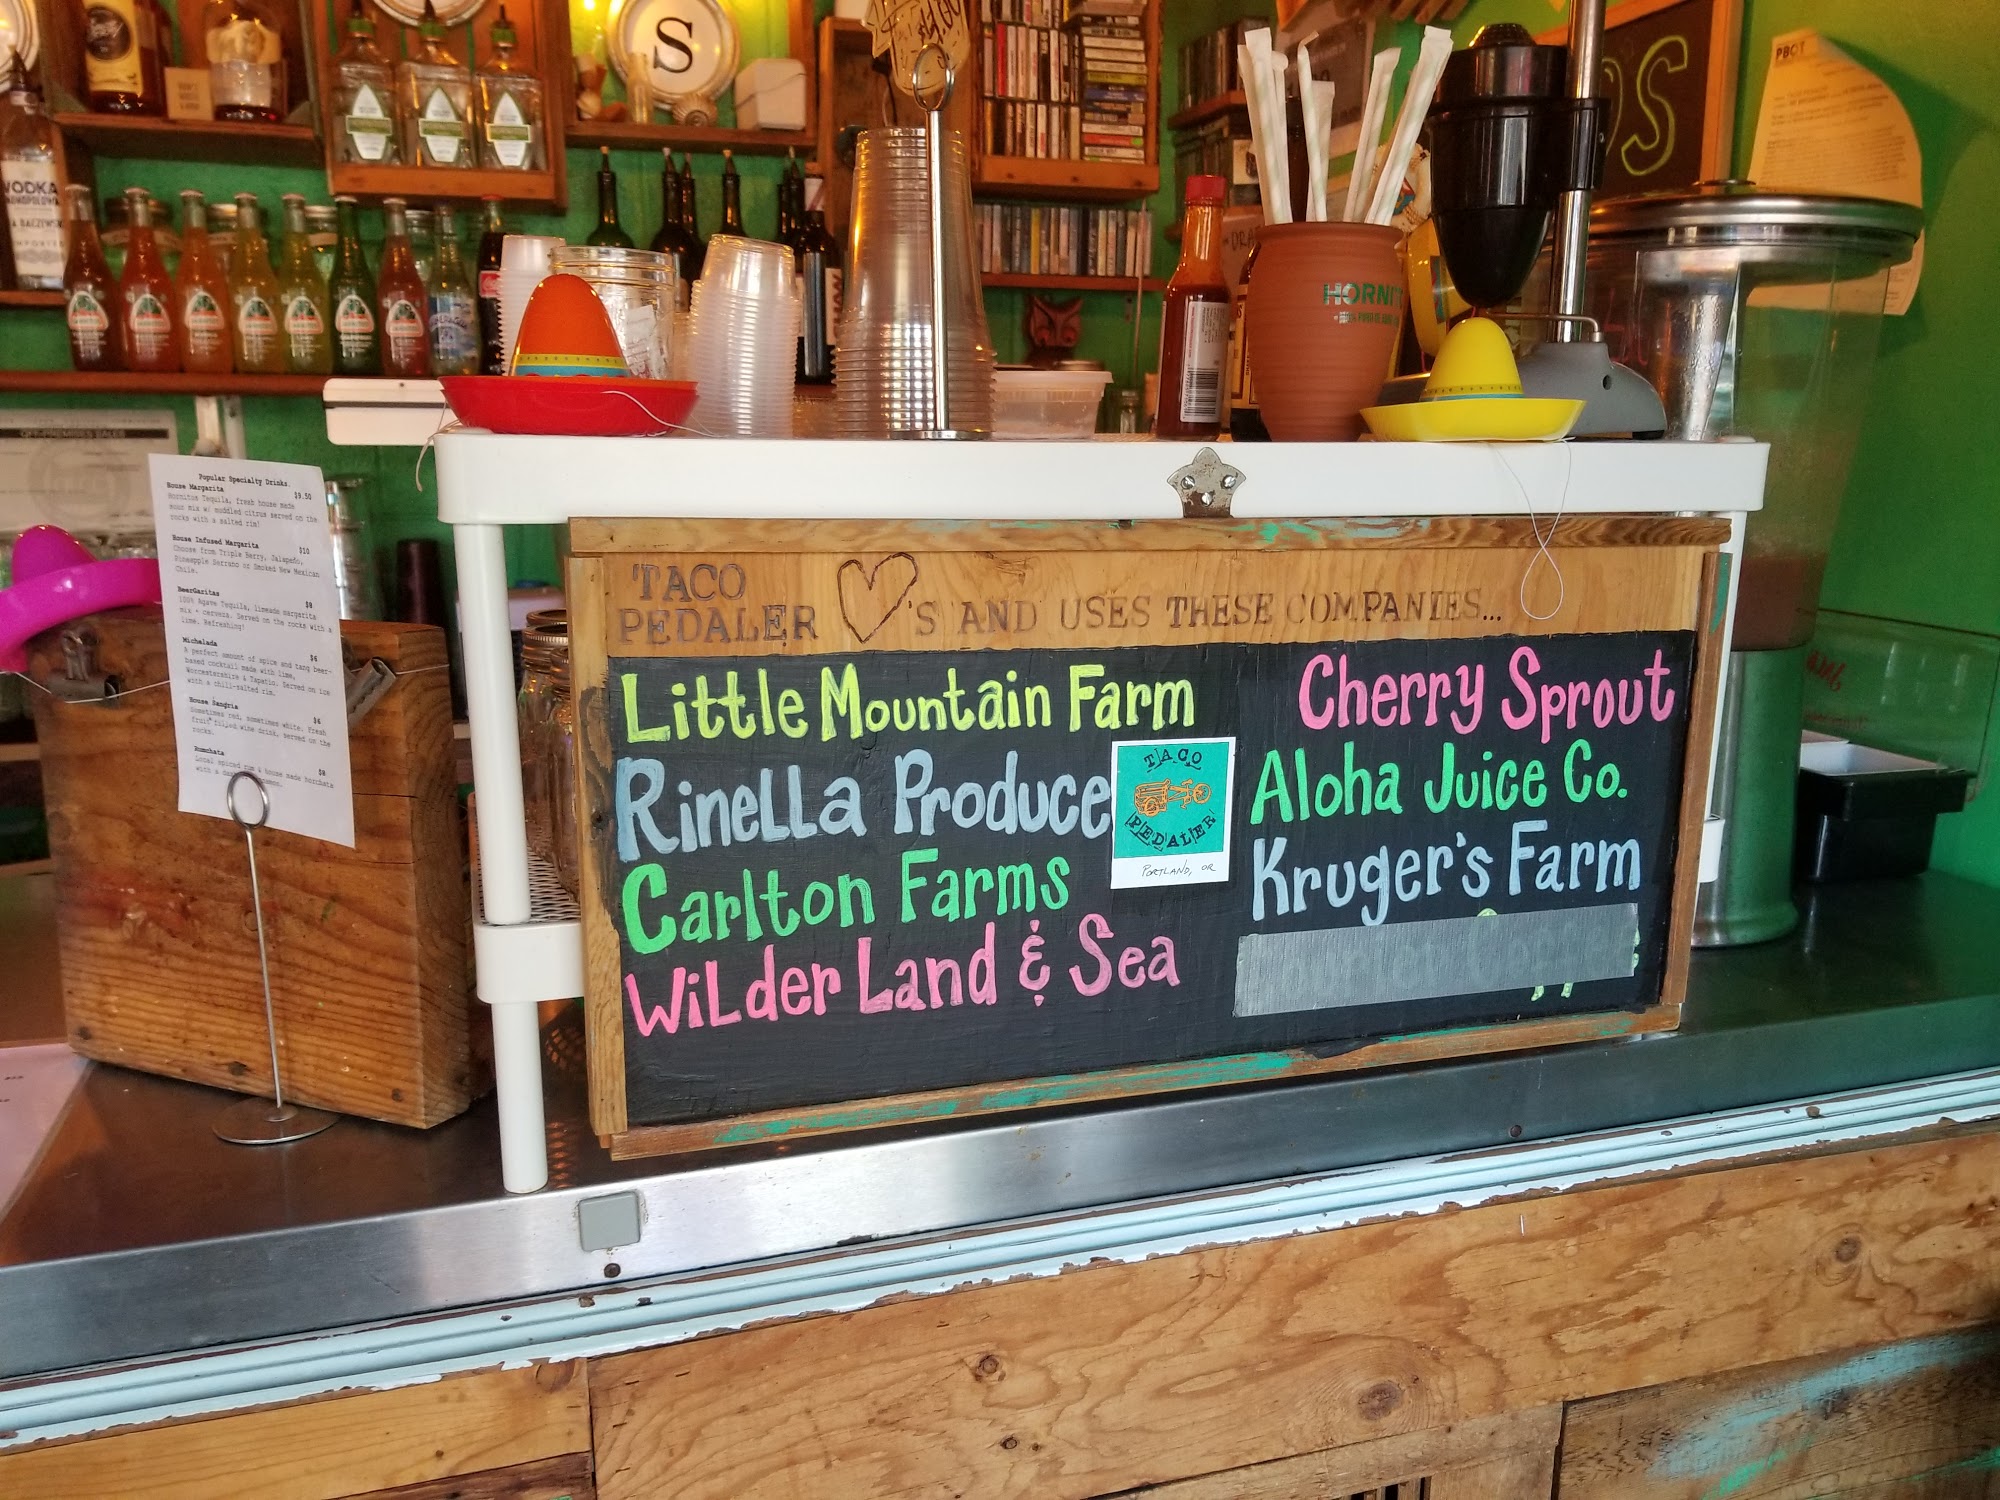 S
VODKA
PBOT
HORNIT
Popular Specialty Drinks
House Margarita $9.50
Hornitos Tequila, fresh house made
sour mix w/ muddled citrus served on the
rocks with a salted rim!
House Infused Margarita $10
Choose from Triple Berry, Jalapeño,
Pineapple Serrano or Smoked New Mexican
Chile.
BeerGaritas $8
100% Agave Tequila, limeade margarita
mix + cerveza. Served on the rocks with a
lime. Refreshing!
Michelada $6
A perfect amount of spice and tang beer-
based cocktail made with lime,
Worcestershire & Tapatio. Served on ice
with a chili-salted rim.
House Sangria $6
Sometimes red, sometimes white. Fresh
fruit filled wine drink, served on the
rocks.
Rumchata $8
Local spiced rum & house made horchata
with a
TACO
PEDALER 'S AND USES THESE COMPANIES...
Little Mountain Farm
Rinella Produce
Carlton Farms
Wilder Land & Sea
TACO
PEDALER
PORTLAND, OR
Cherry Sprout
Aloha Juice Co.
Kruger's Farm